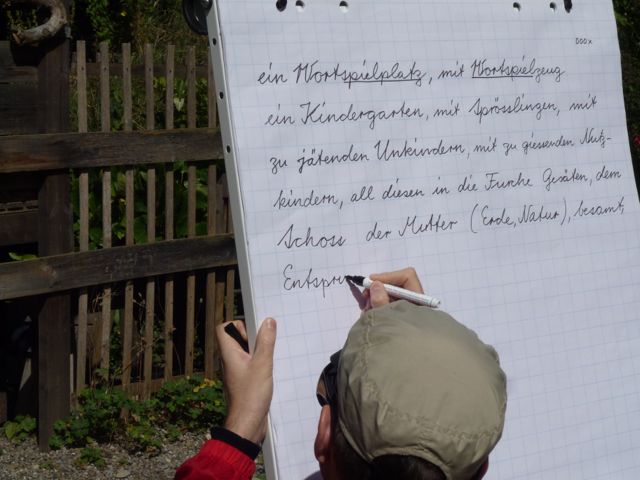 000x
ein Wortspielplatz, mit Wortspielzeug
ein Kindergarten, mit Sprösslingen, mit
zu jätenden Unkindern, mit zu giessenden Nutz-
kindern, all diesen in die Furche Gesäten, dem
Schoss der Mutter (Erde, Natur), besamt,
Entspru